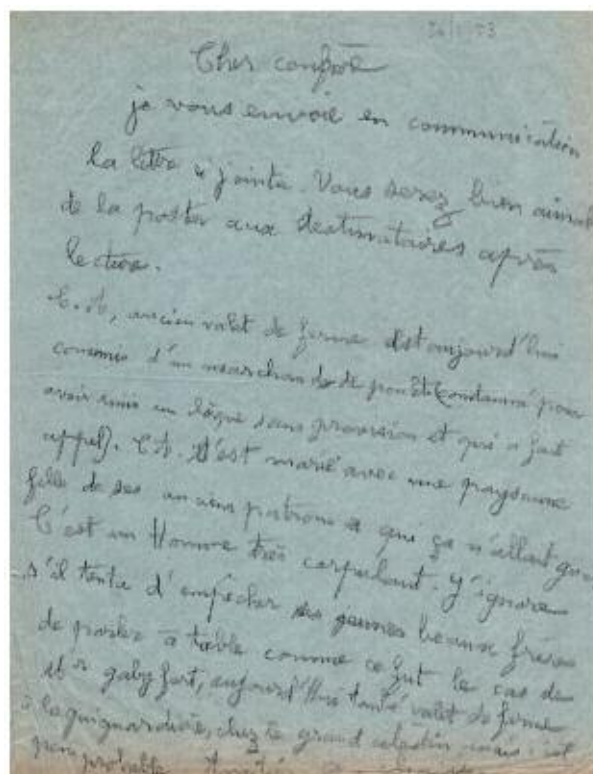 Cher confrère
je vous envoie en communication
la lettre ci jointe. Vous serez bien aimable
de la poster aux destinataires après
lecture.
C.A, ancien valet de ferme est aujourd'hui
commis d'un marchand de (condamné pour
avoir mis un chèque sans provision et qui a fait
appel). C.A. s'est marié avec une paysanne
fille de ses anciens patrons à qui ça n'allait
C'est un Homme très corpulent. J'ignore
s'il tenta d'empêcher ses jeunes beaux frères
de parler à table comme ce fut le cas de
gaby fort, aujourd'hui valet de ferme
à la chez le grand célestin mais
peu probable